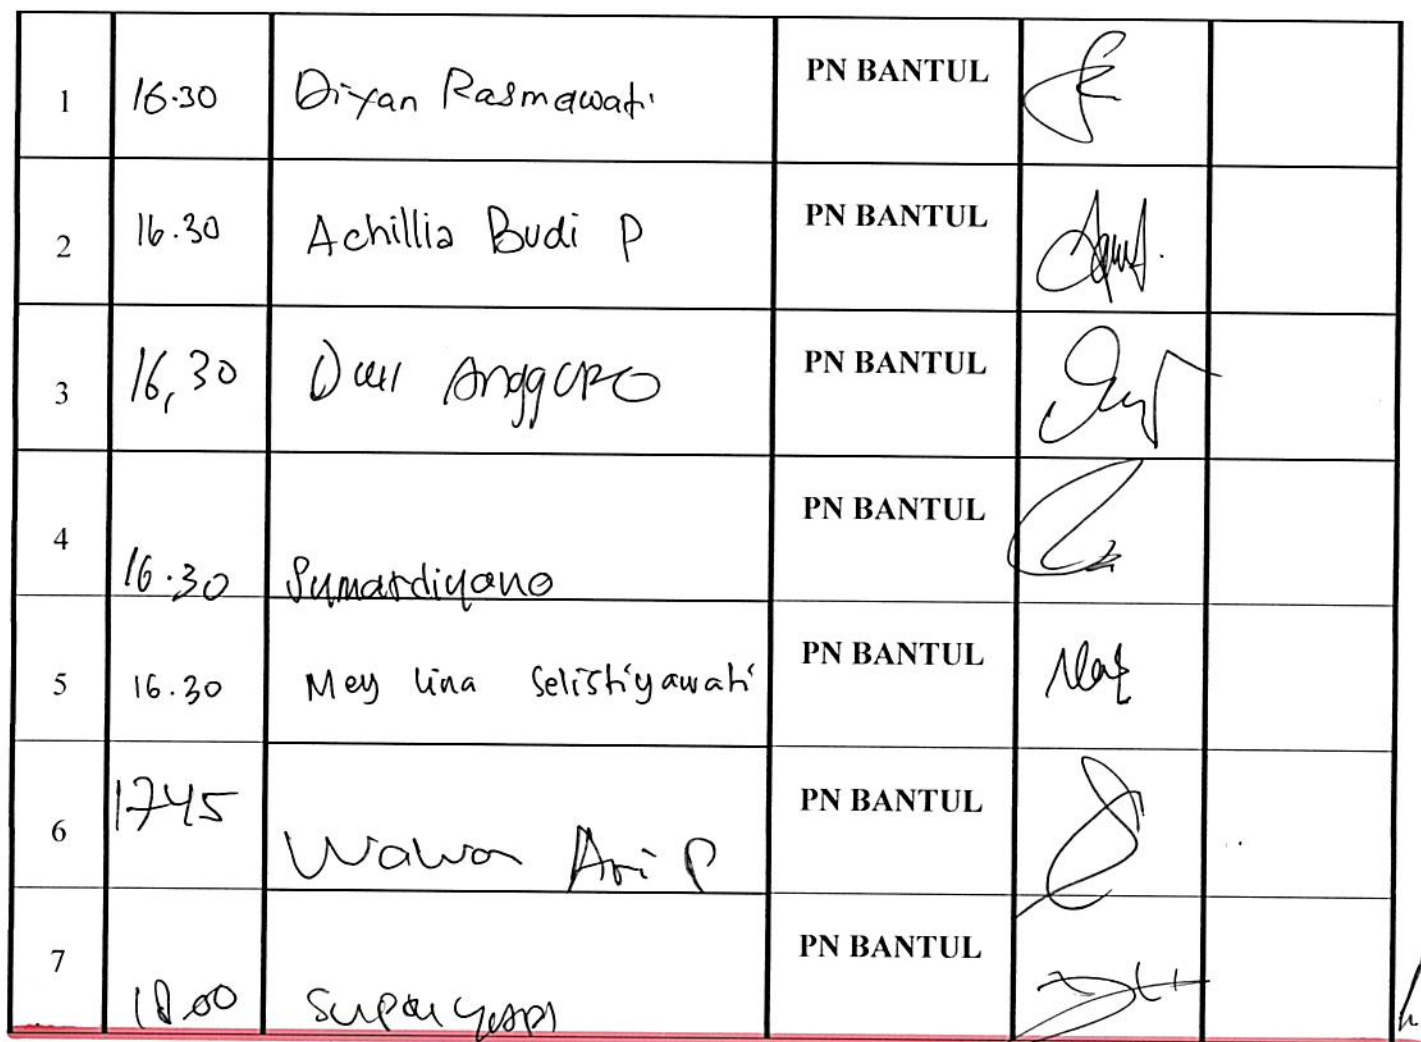 1 16.30 Diyan Rasmawati PN BANTUL
2 16.30 Achillia Budi P PN BANTUL
3 16,30 Dwi Anggoro PN BANTUL
4 16.30 Sumardiyono PN BANTUL
5 16.30 Mey Lina Selistiyawati PN BANTUL
6 1745 Wawan Ari P PN BANTUL
7 18.00 PN BANTUL